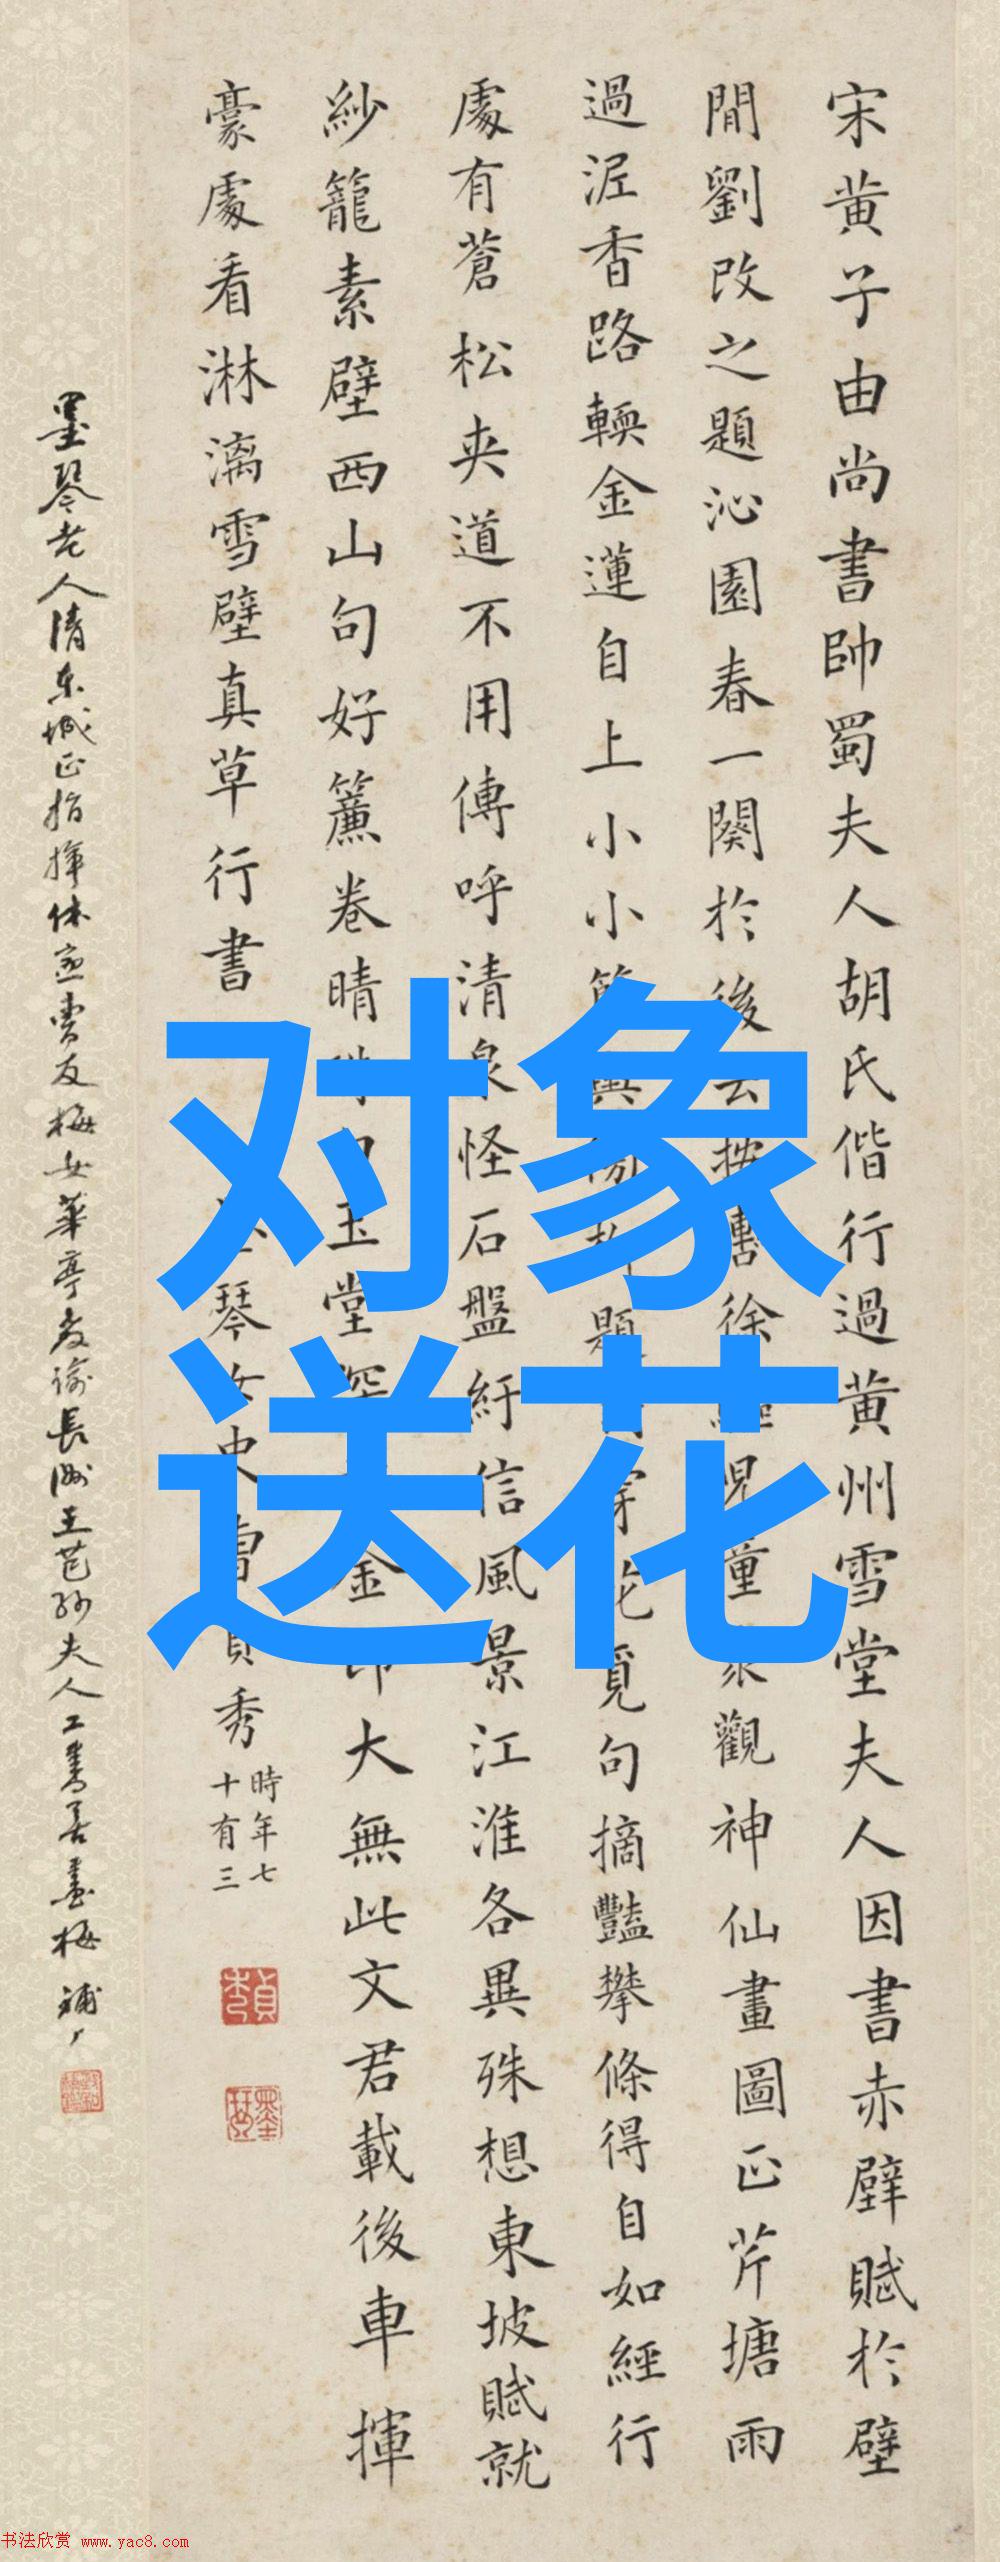 宋黄子由尚書帥蜀夫人胡氏偕行過黄州雪堂夫人因書赤壁賦於壁
間劉改之題沁園春一闋於後云按轡徐 兒童 觀神仙畫圖正芹塘雨
過泥香路輭金蓮自上小小 輿 題 穿花覓句摘豔攀條得自如經行
處有蒼松夾道不用傳呼清泉怪石盤紆信風景江淮各異殊想東坡賦就
紗籠素壁西山句好簾卷晴 玉堂 金印大無此文君載後車揮
豪處看淋漓雪壁真草行書
琴女史曹貞秀
時年七
十有三
墨琴老人清東城正指揮休 曹友梅女華亭教諭長洲王芑孫夫人工書善畫梅
對象
送花
书法欣赏 www.yac8.com